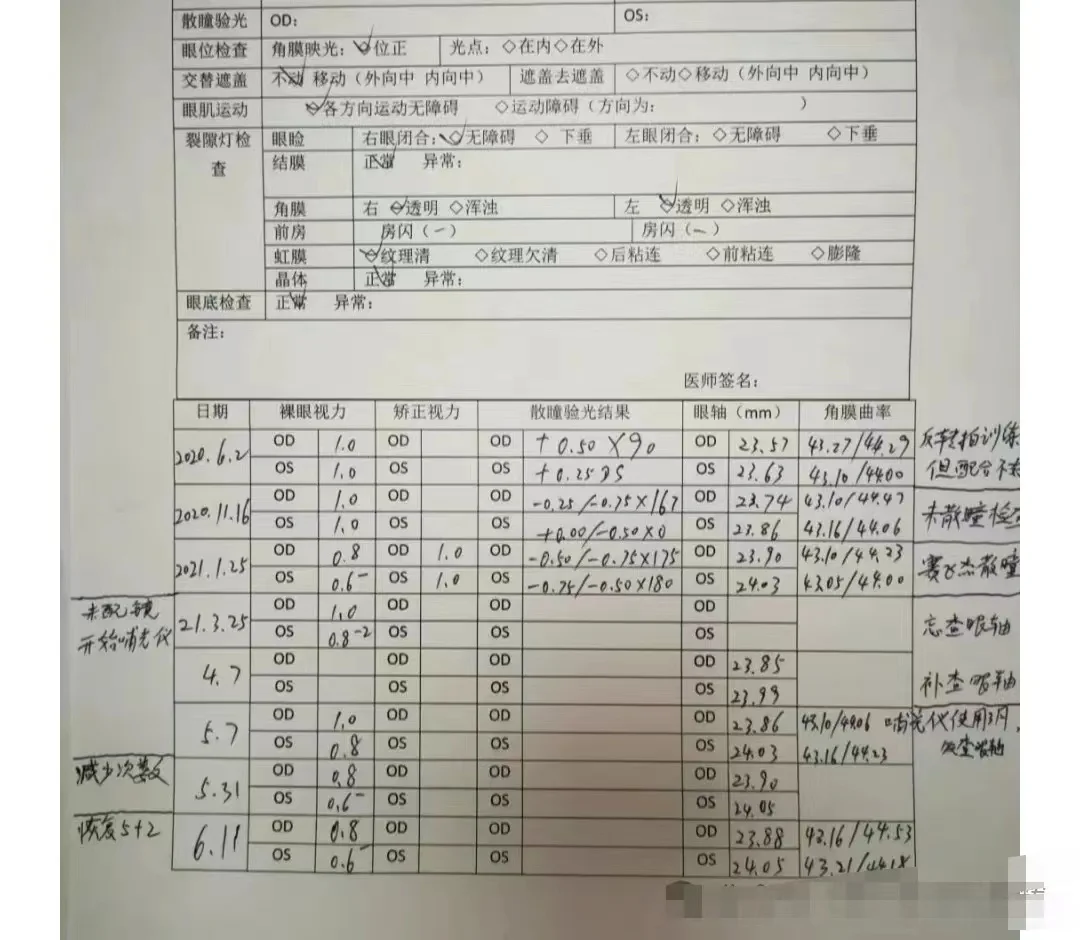 散瞳验光 OD: OS:
眼位检查 角膜映光: ◇位正 光点: ◇在内◇在外
交替遮盖 不动 移动(外向中 内向中) 遮盖去遮盖 ◇不动◇移动(外向中 内向中)
眼肌运动 ◇各方向运动无障碍 ◇运动障碍(方向为: )
裂隙灯检查 眼睑 右眼闭合: ◇无障碍 ◇ 下垂 左眼闭合: ◇无障碍 ◇下垂
结膜 正常 异常:
角膜 右 ◇透明 ◇浑浊 左 ◇透明 ◇浑浊
前房 房闪(-) 房闪(-)
虹膜 ◇纹理清 ◇纹理欠清 ◇后粘连 ◇前粘连 ◇膨隆
晶体 正常 异常:
眼底检查 正常 异常:
备注:
医师签名:
日期 裸眼视力 矫正视力 散瞳验光结果 眼轴(mm) 角膜曲率
2020.6.2 OD 1.0 OD OD +0.50×90 OD 23.57 43.27/44.29 反转拍训练
OS 1.0 OS OS +0.25DS OS 23.63 43.10/44.00 但配合不
2020.11.16 OD 1.0 OD OD -0.25/-0.75×167 OD 23.74 43.10/44.47 未散瞳检查
OS 1.0 OS OS +0.00/-0.50×0 OS 23.86 43.16/44.06
2021.1.25 OD 0.8 OD 1.0 OD -0.50/-0.75×175 OD 23.90 43.10/44.23 赛飞杰散瞳
OS 0.6- OS 1.0 OS -0.75/-0.50×180 OS 24.03 43.05/44.00
未配镜
开始哺光仪
21.3.25 OD 1.0 OD OD OD 忘查眼轴
OS 0.8-2 OS OS OS
4.7 OD OD OD OD 23.85 补查眼轴
OS OS OS OS 23.99
5.7 OD 1.0 OD OD OD 23.86 43.10/44.06 哺光仪使用3月,
OS 0.8 OS OS OS 24.03 43.16/44.23 复查眼轴
减少次数
5.31 OD 0.8 OD OD OD 23.90
OS 0.6- OS OS OS 24.05
恢复5+2
6.11 OD 0.8 OD OD OD 23.88 43.16/44.53
OS 0.6- OS OS OS 24.05 43.21/44.18